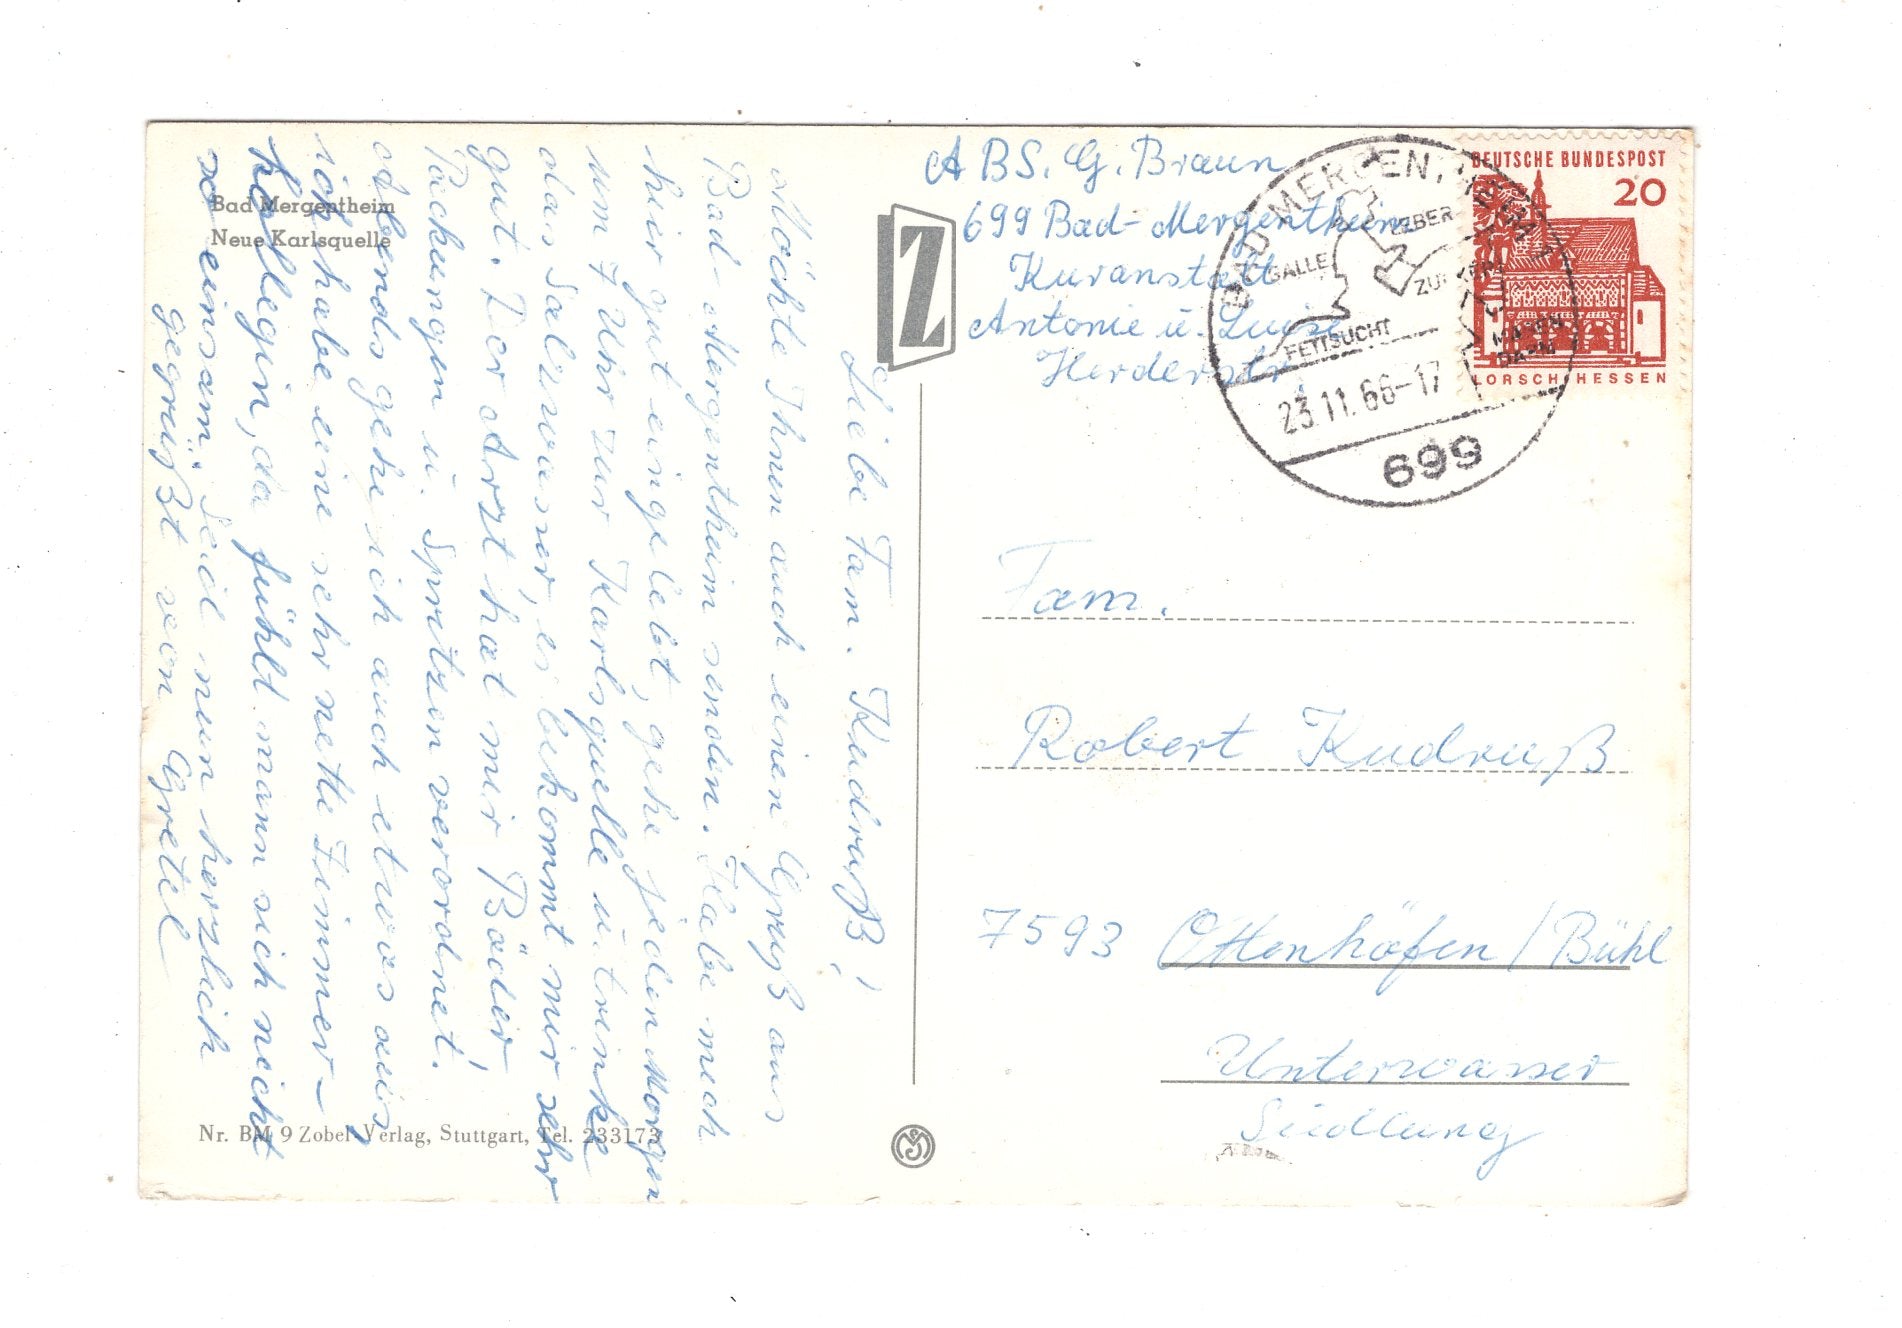 Bad Mergentheim
Neue Karlsquelle
Liebe Fam. Kudruß!
Möchte Ihnen auch einen Gruß aus
Bad-Mergentheim senden. Habe mich
hier gut eingelebt, gehe jeden Morgen
um 7 Uhr zur Karlsquelle u. trinke
das Salzwasser, es bekommt mir sehr
gut. Der Arzt hat mir Bäder,
Packungen u. Spritzen verordnet.
abends gehe ich auch etwas aus,
ich habe eine sehr nette Zimmer-
kollegin, da fühld mann sich nicht
so einsam. Seid nun herzlich
gegrüßt von Gretel
Nr. BM 9 Zobel-Verlag, Stuttgart, Tel. 233173
Z
ABS. G. Braun
699 Bad-Mergentheim
Kuranstalt
Antonie u. Luise
Herderstr.
BAD MERGENTHEIM
LEBER-
GALLE
ZUCKER
FETTSUCHT
MAGEN
DARM
23.11.66-17
699
DEUTSCHE BUNDESPOST
20
LORSCH/HESSEN
Fam.
Robert Kudruß
7593 Ottenhöfen/Bühl
Unterwasser
Siedlung